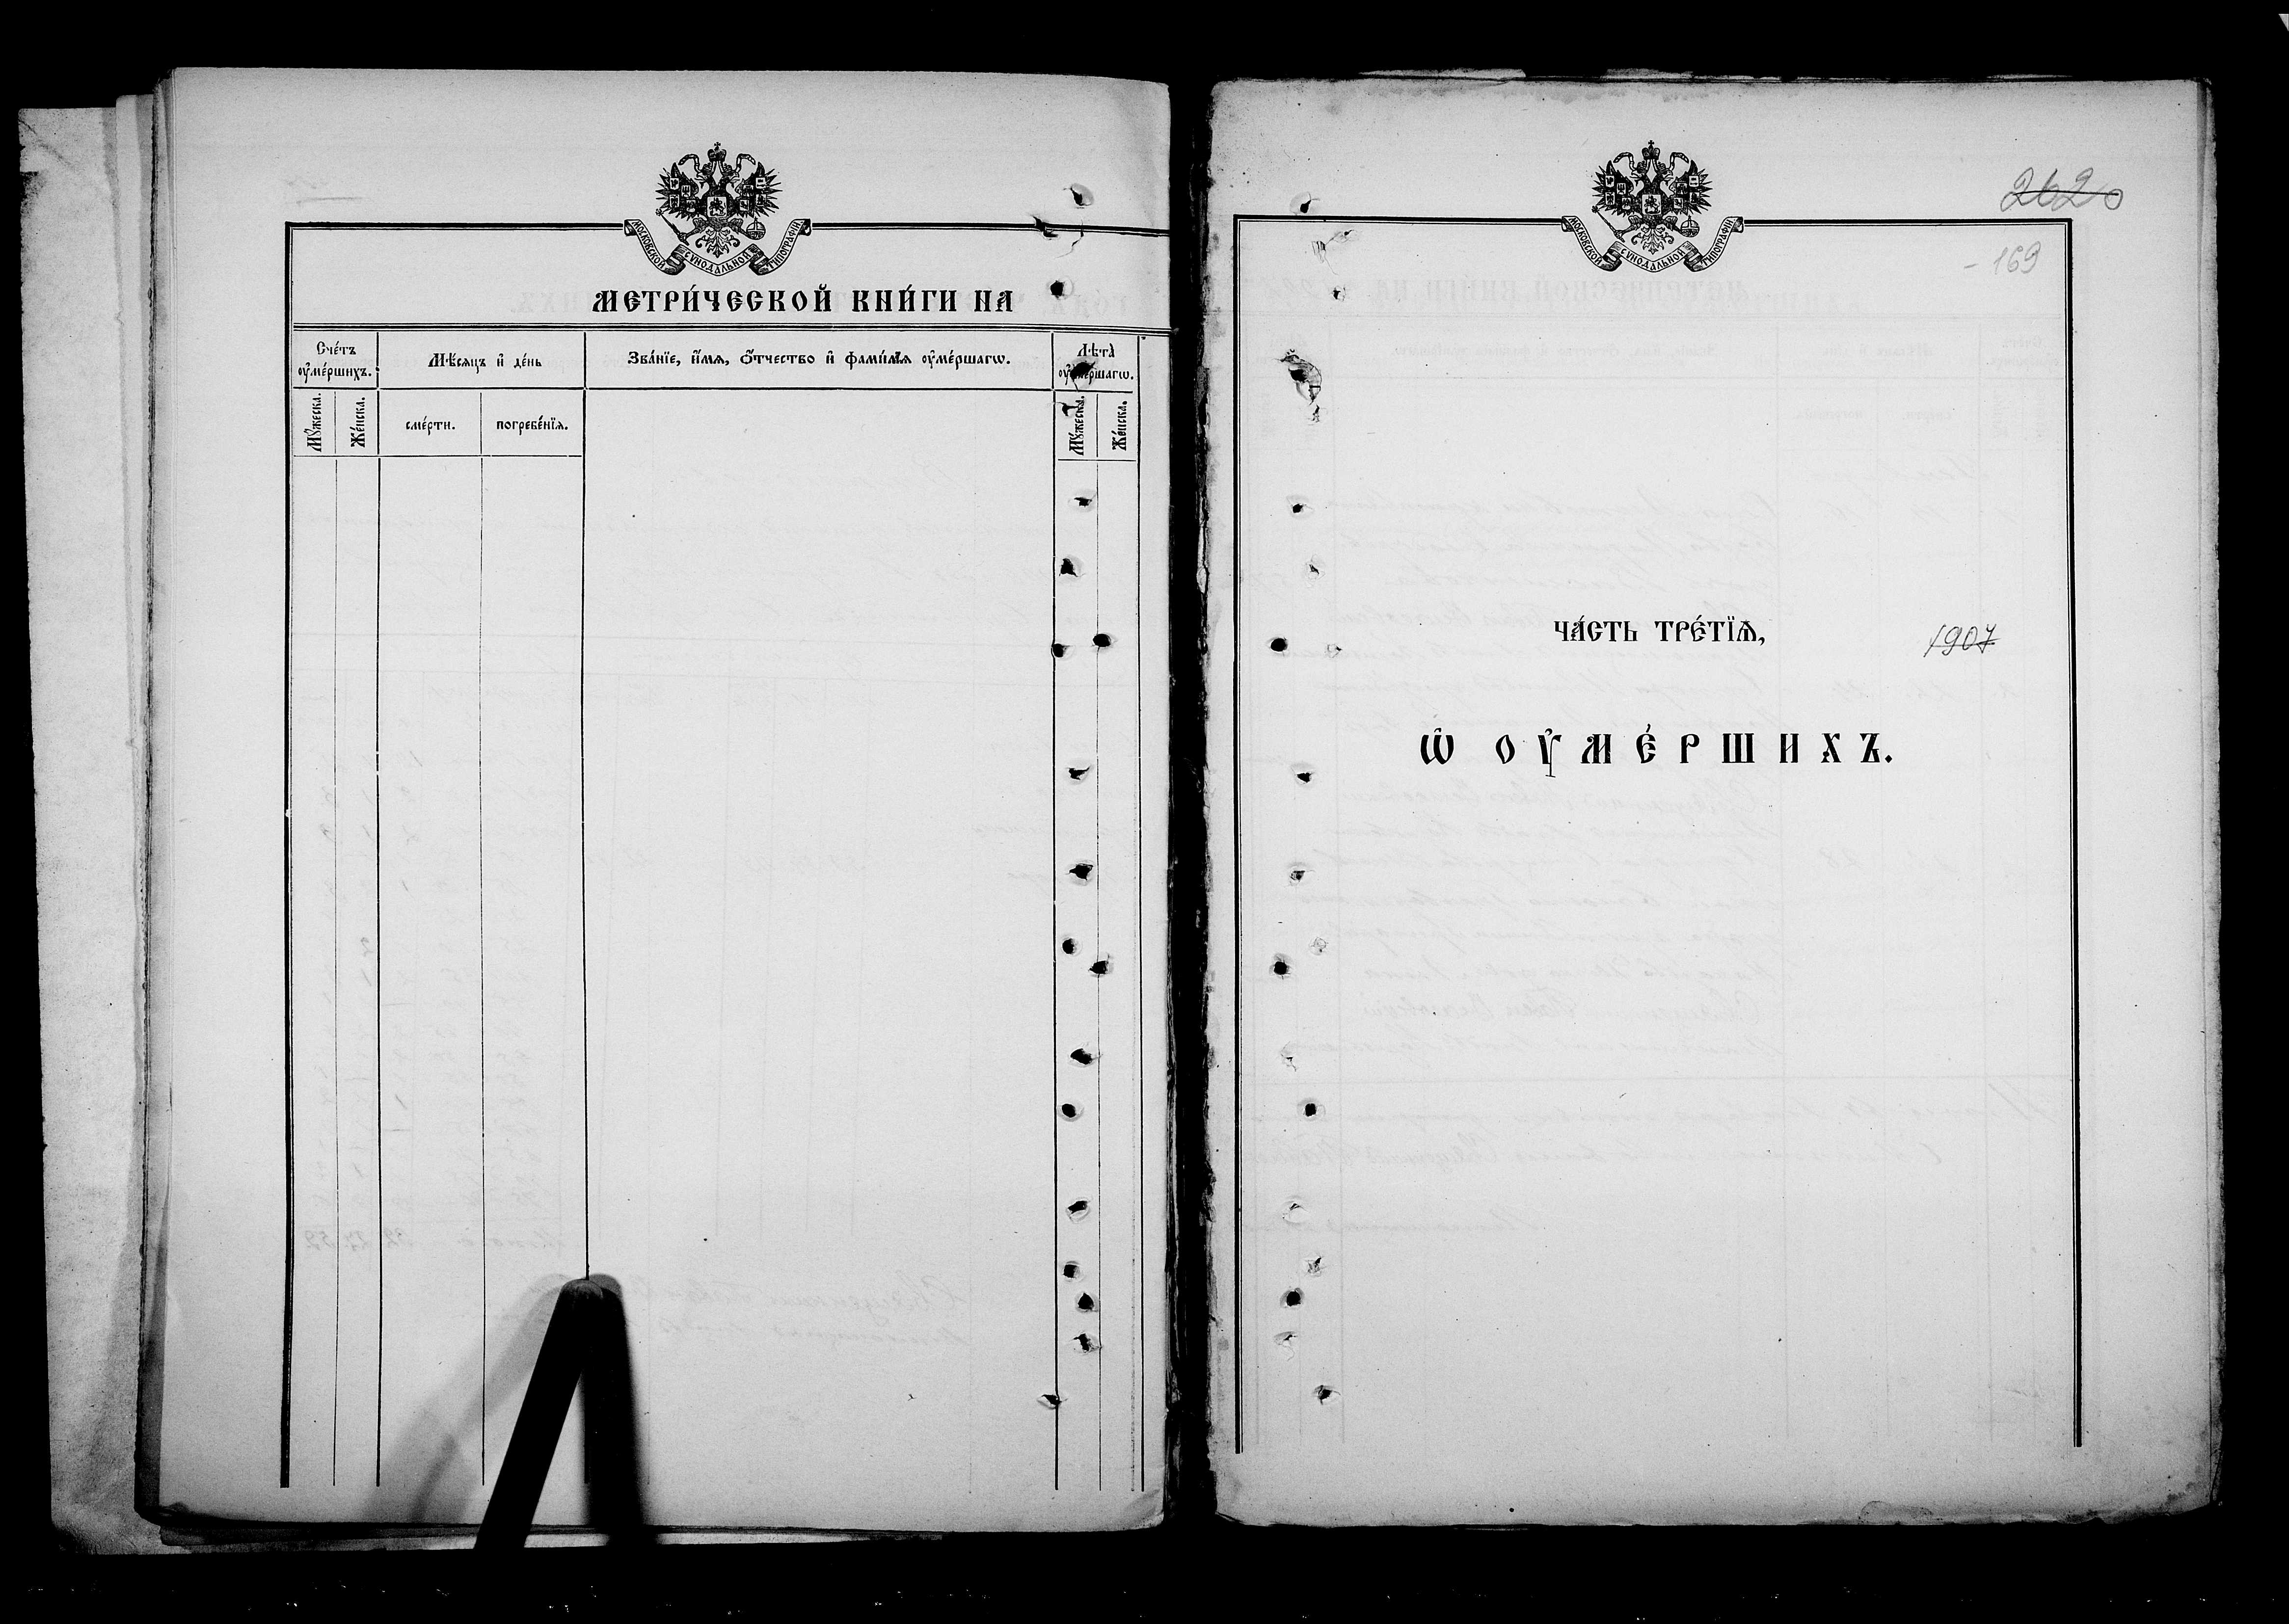 МОСКОВСКОЙ СѴНОДАЛЬНОЙ ТИПОГРАФІИ
МЕТРИ́ЧЕСКОЙ КНИ́ГИ НА
Сче́тъ ᲂу҆ме́ршихъ.
Мѣ́сяцъ и҆ де́нь
Зва́нїе, и҆́мѧ, ѻ҆́тчество и҆ фами́лїѧ ᲂу҆ме́ршагѡ.
Лѣ́та ᲂу҆ме́ршагѡ.
Мꙋ́жеска.
Же́нска.
сме́рти.
погребе́нїѧ.
Мꙋ́жеска.
Же́нска.
МОСКОВСКОЙ СѴНОДАЛЬНОЙ ТИПОГРАФІИ
- 169
ЧА́СТЬ ТРЕ́ТЇѦ,
1907
Ѡ҆ ОУ҆МЕ́РШИХЪ.